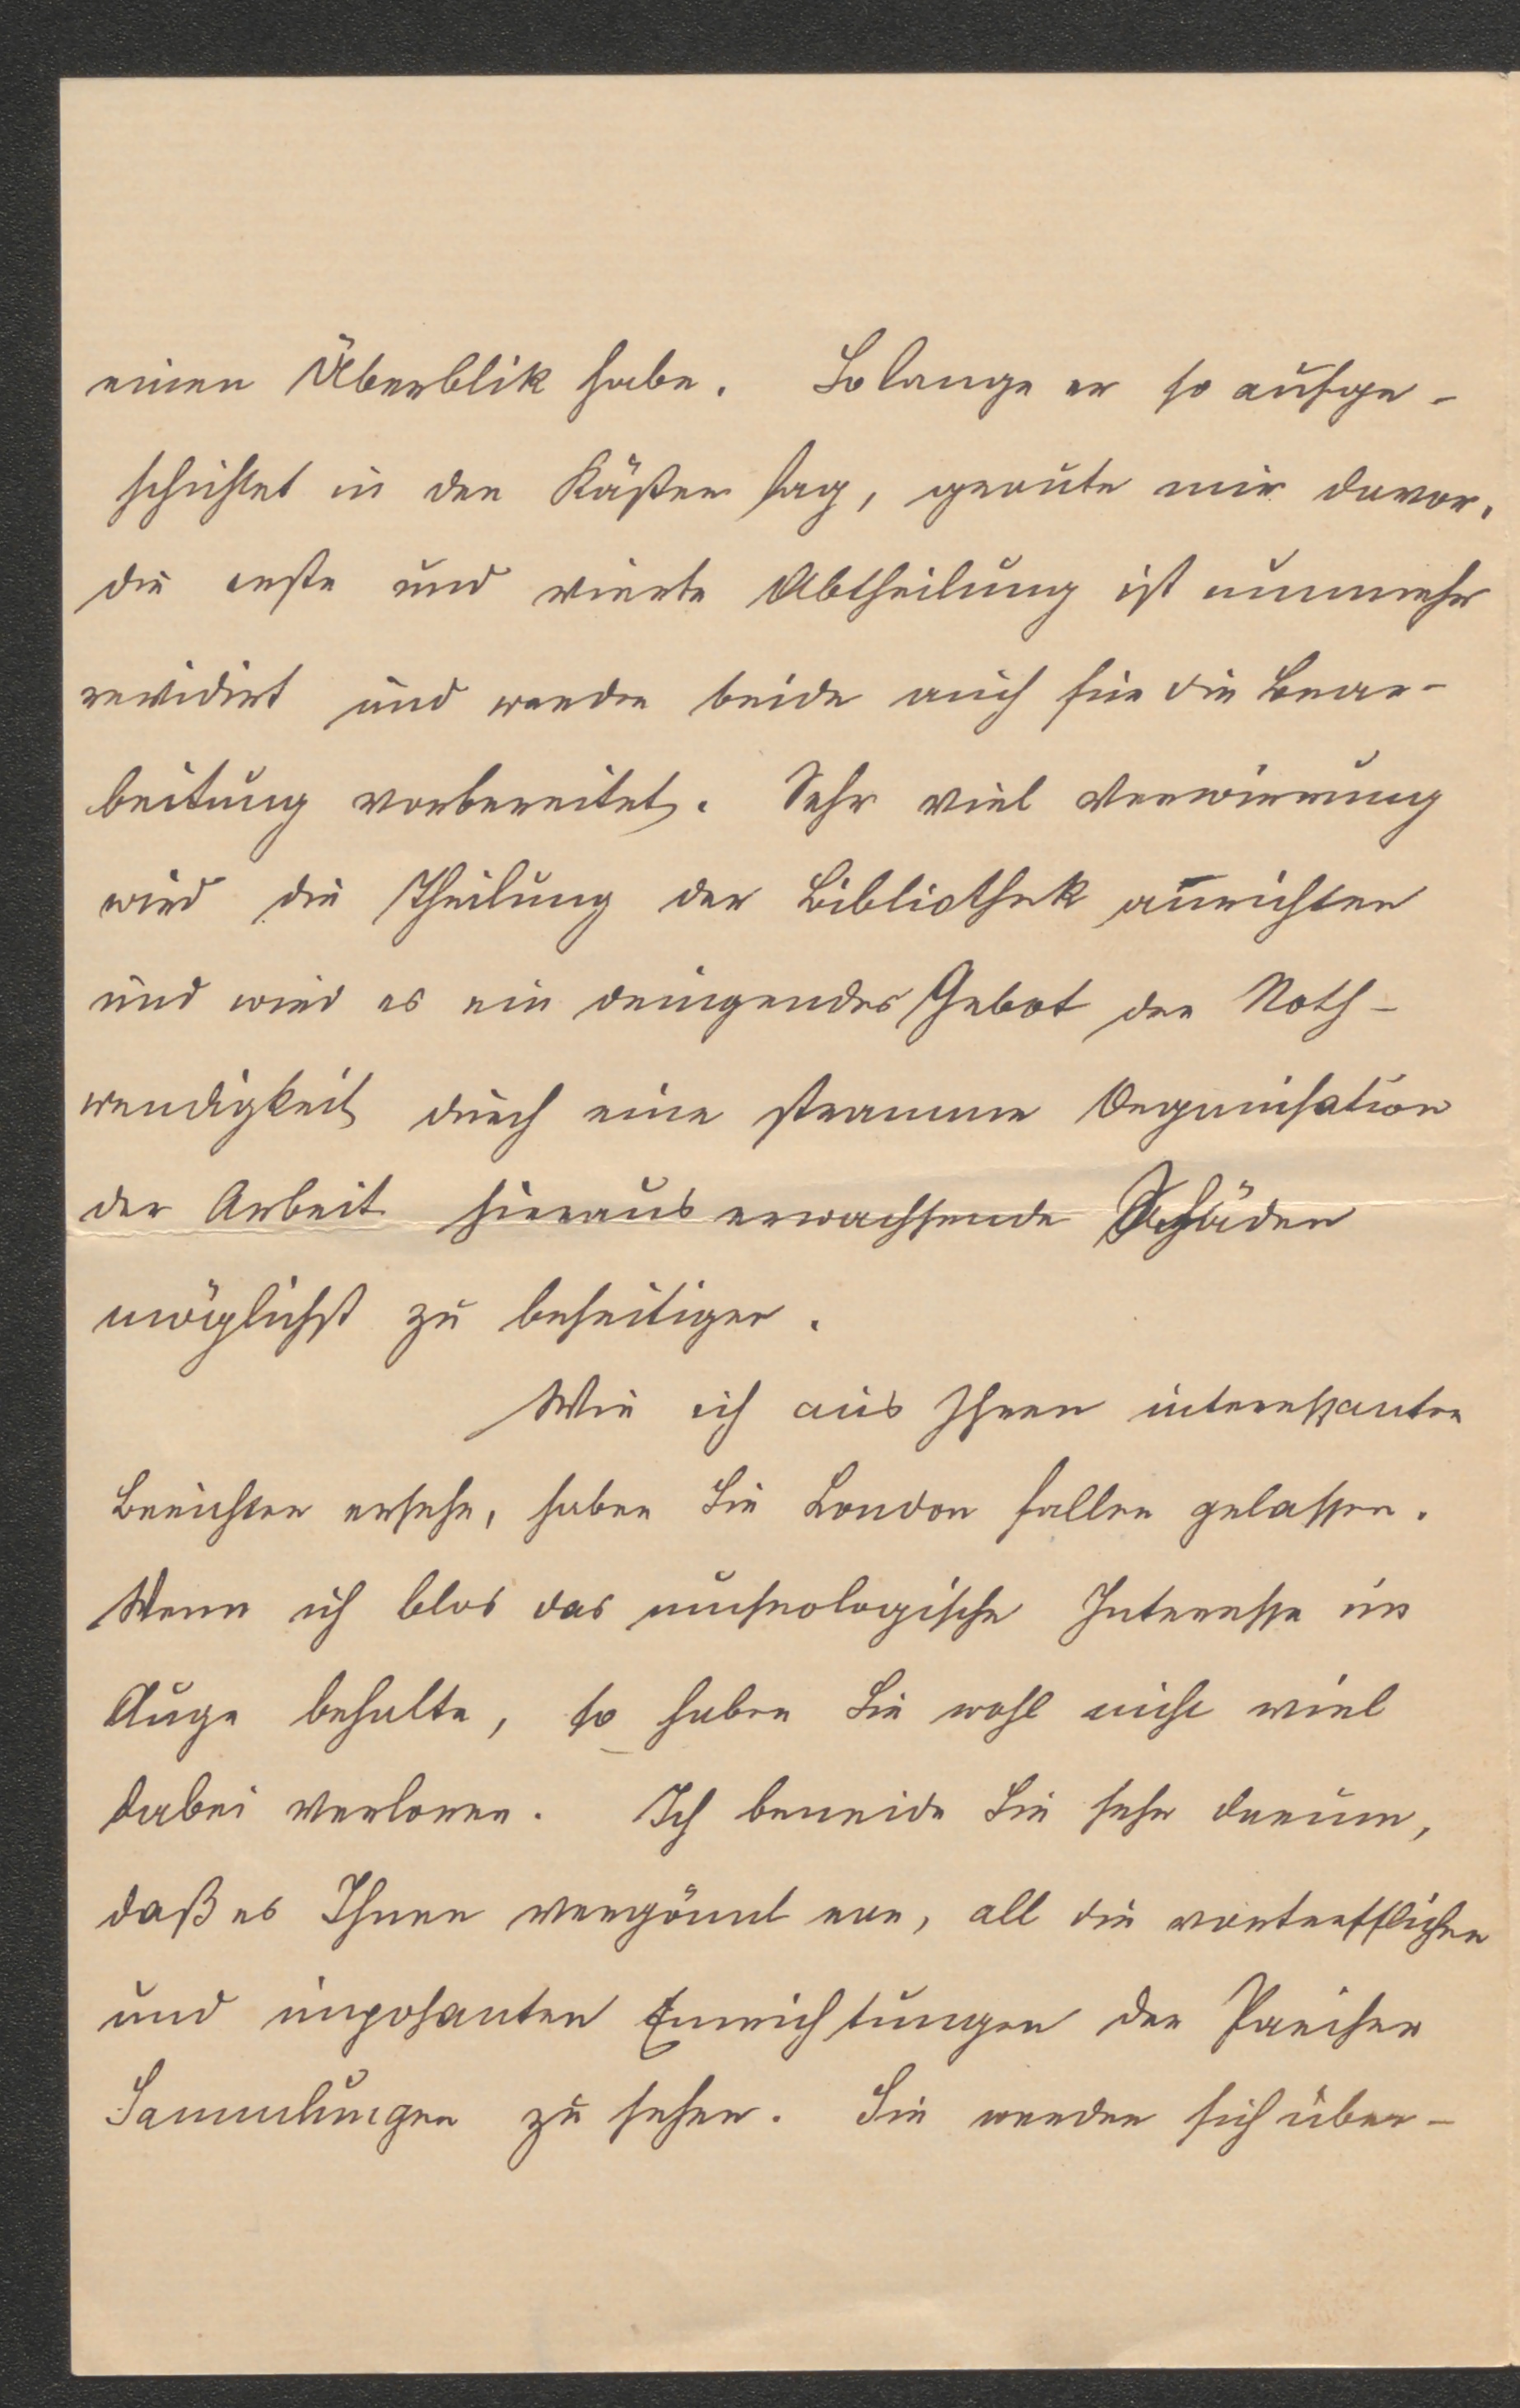 einen Überblik habe. Solange er so aufge-
schichtet in den Kästen lag, graute mir davor.
die erste und vierte Abtheilung ist nunmehr
revidirt und werden beide auch für die Bear-
beitung vorbereitet. Sehr viel Verwirrung
wird die Theilung der Bibliothek anrichten
und wird es ein dringendes Gebot der Noth-
wendigkeit durch eine stramme Organisation
der Arbeit hieraus erwachsende Schäden
möglichst zu beseitigen.
Wie ich aus Ihren interessanten
Berichten ersehe, haben Sie London fallen gelassen.
Wenn ich blos das museologische Interesse im
Auge behalte, so haben Sie wohl nicht viel
dabei verloren. Ich beneide Sie sehr darum,
daß es Ihnen vergönnt war, all die vortrefflichen
und imposanten Einrichtungen der Pariser
Sammlungen zu sehen. Sie werden sich über-